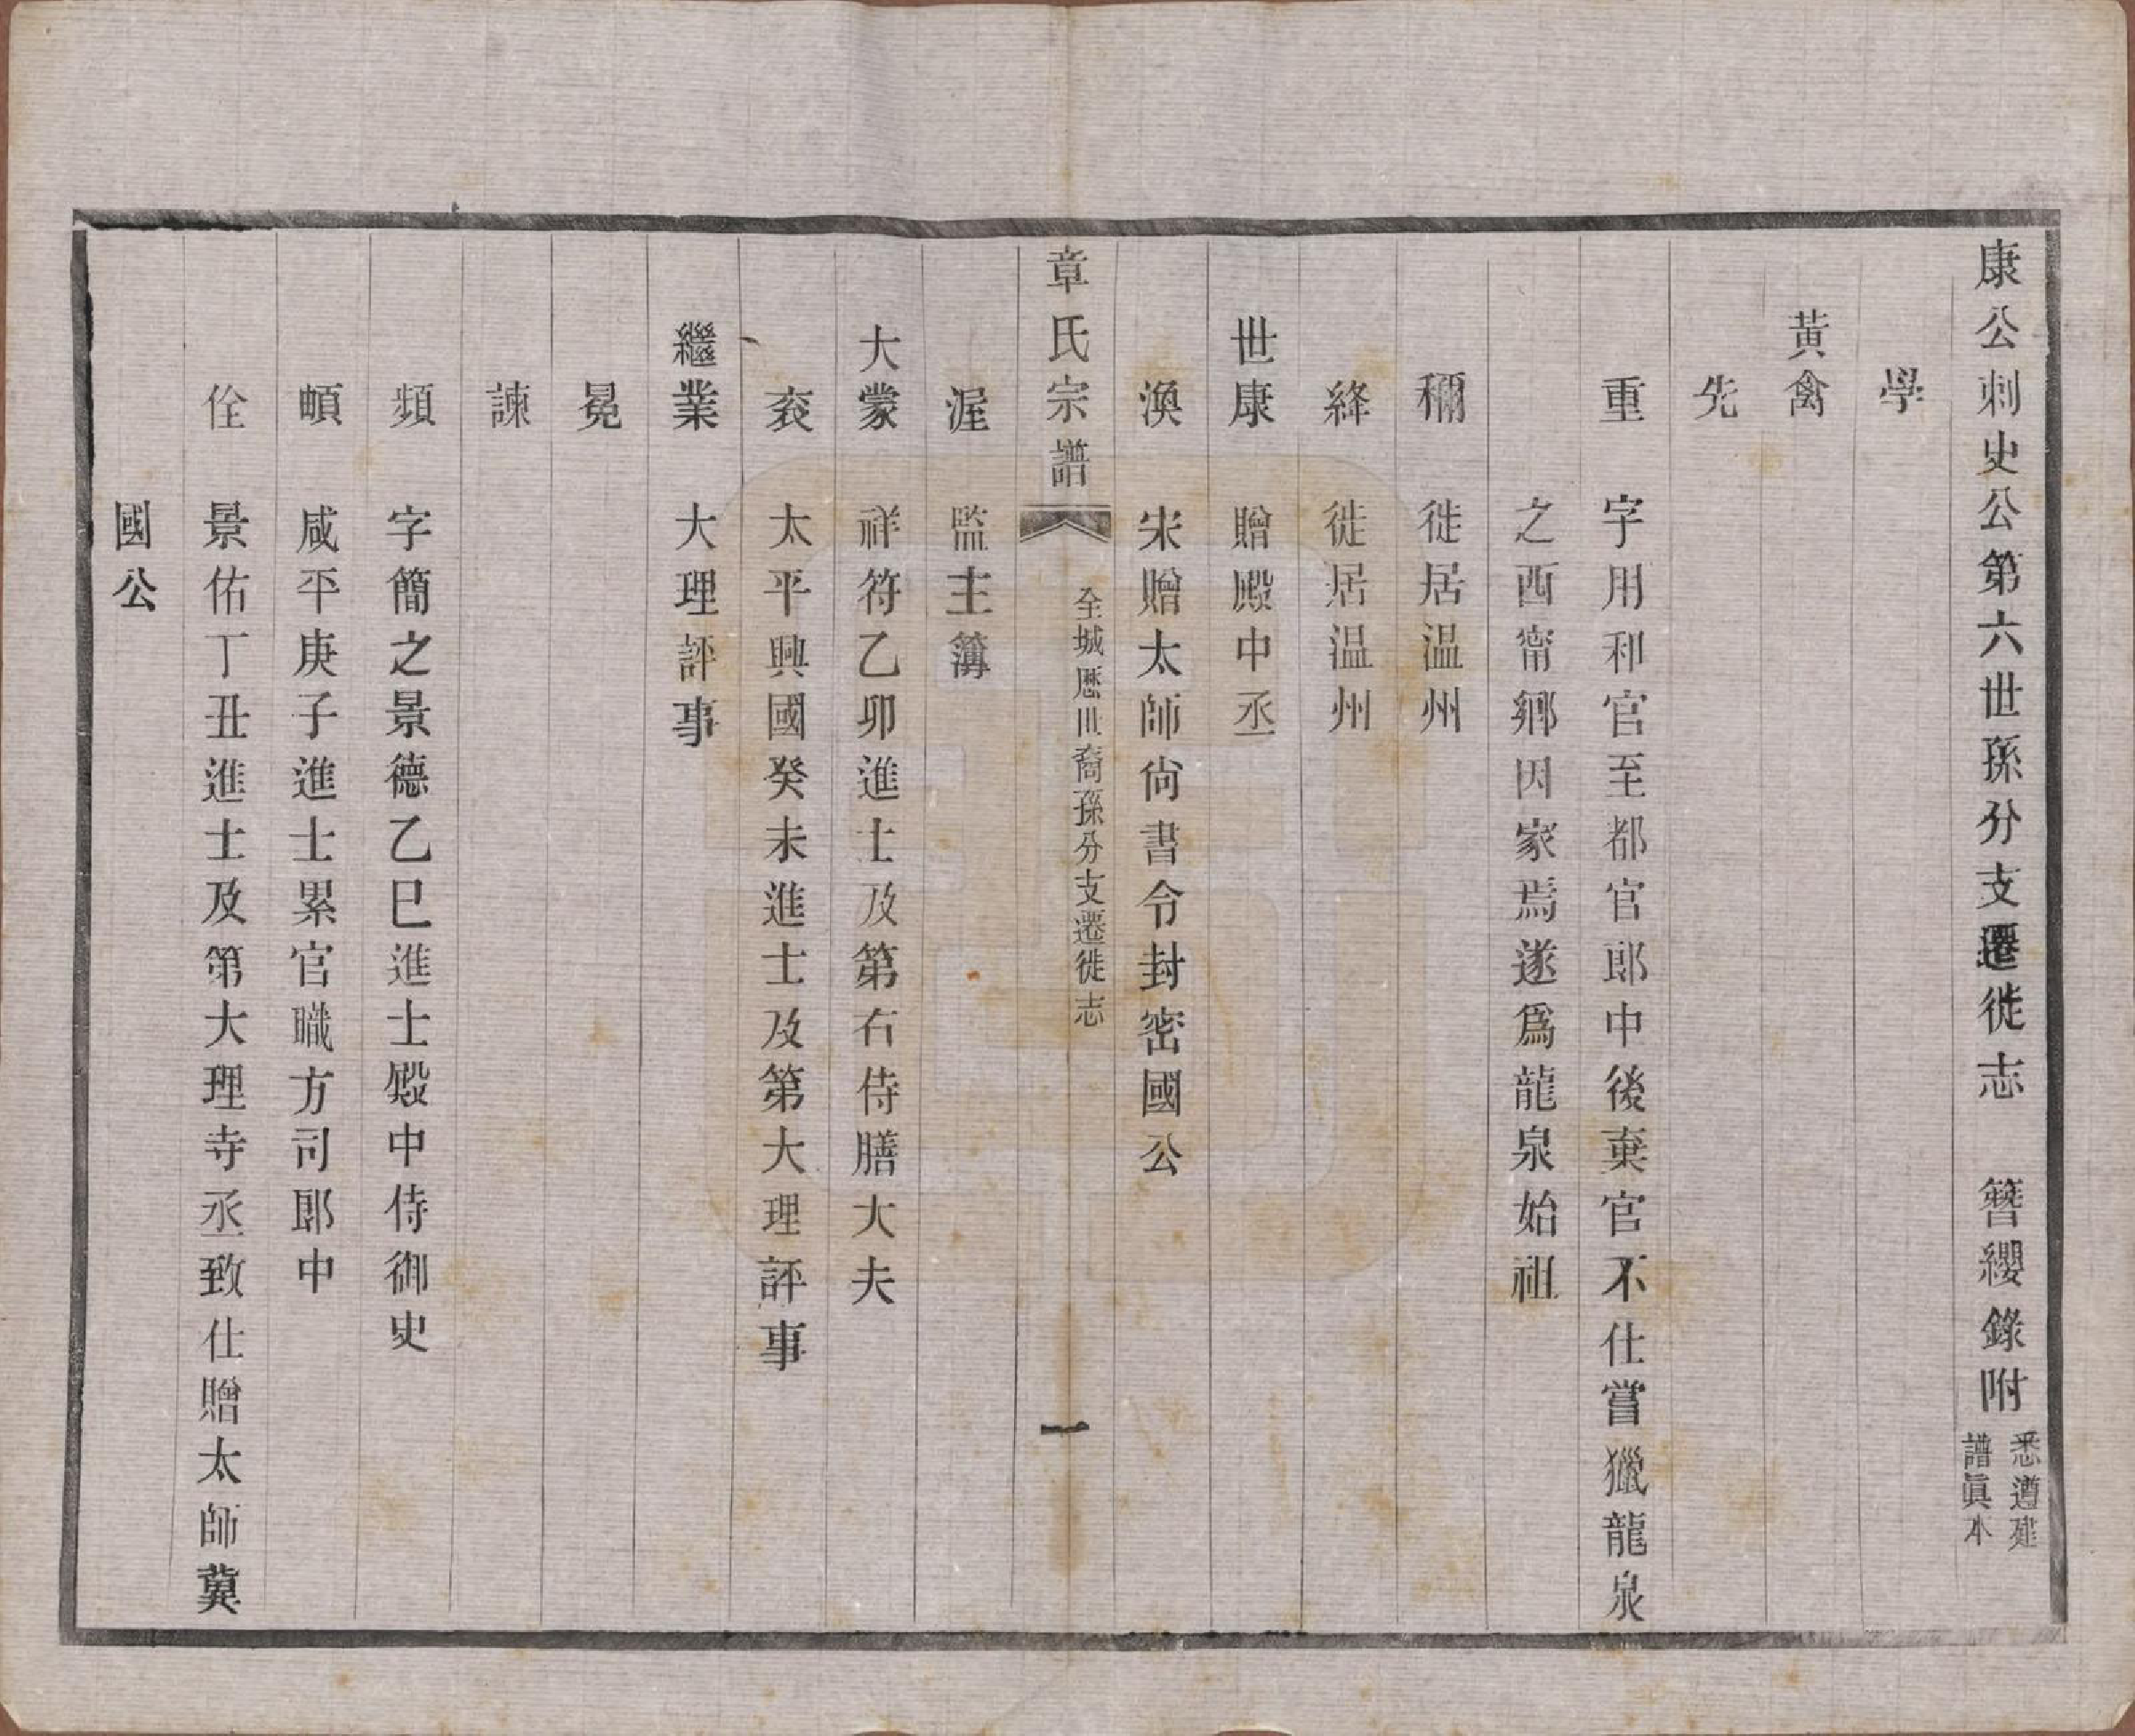 康公刺史公第六世孫分支遷徙志　簪纓錄附
悉遵建
譜眞本
學
黃禽
先
重　字用和官至都官郎中後棄官不仕嘗獵龍泉
之西甯鄉因家焉遂爲龍泉始祖
穪　徙居温州
絳　徙居温州
世康　贈殿中丞
渙　宋贈太師尙書令封密國公
章氏宗譜　全城歷世裔孫分支遷徙志　一
渥　監主簿
大蒙　祥符乙卯進士及第右侍膳大夫
袞　太平興國癸未進士及第大理評事
繼業　大理評事
冕
諫
頻　字簡之景德乙巳進士殿中侍御史
頔　咸平庚子進士累官職方司郎中
佺　景佑丁丑進士及第大理寺丞致仕贈太師冀
國公